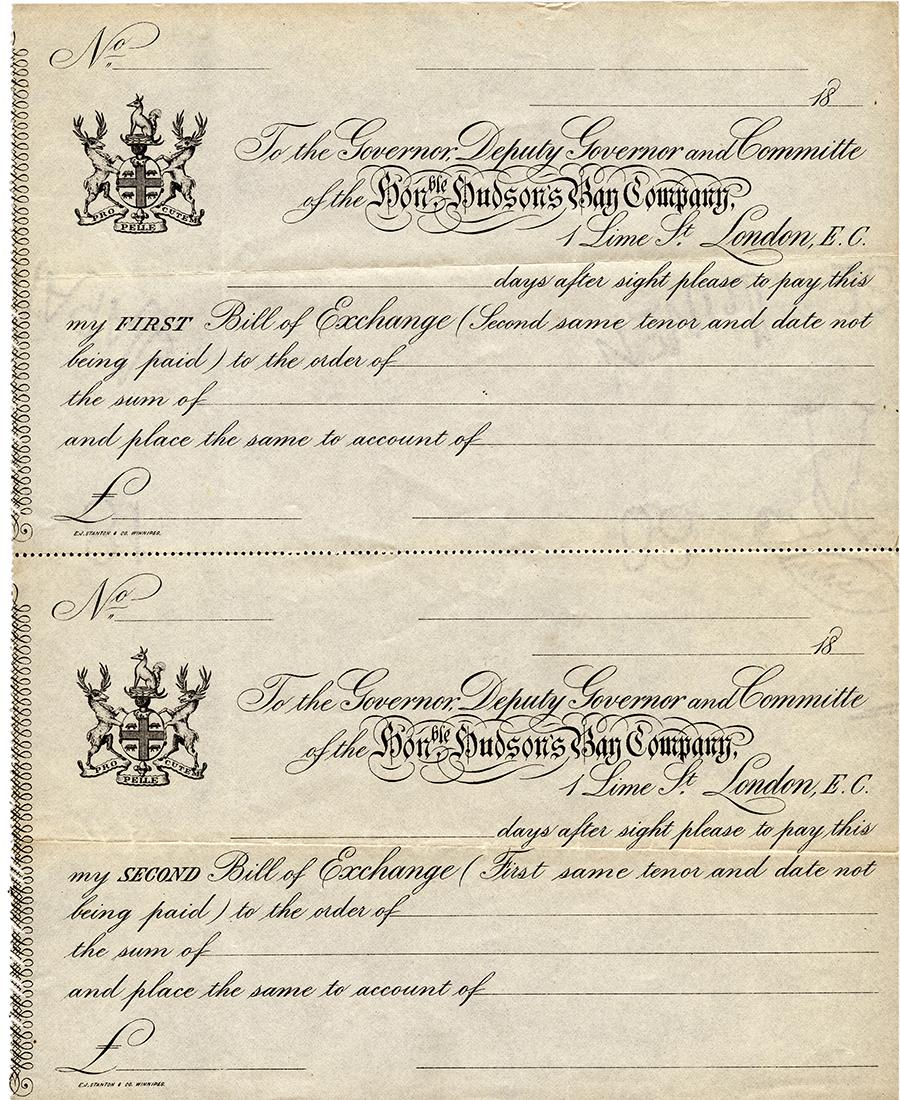 No
18
To the Governor, Deputy Governor and Committe
of the Honble Hudson's Bay Company,
PRO PELLE CUTEM
1 Lime St. London, E.C.
days after sight please to pay this
my FIRST Bill of Exchange (Second same tenor and date not
being paid) to the order of
the sum of
and place the same to account of
£
E.J. STANTON & CO. WINNIPEG.
No
18
To the Governor, Deputy Governor and Committe
of the Honble Hudson's Bay Company,
PRO PELLE CUTEM
1 Lime St. London, E.C.
days after sight please to pay this
my SECOND Bill of Exchange (First same tenor and date not
being paid) to the order of
the sum of
and place the same to account of
£
E.J. STANTON & CO. WINNIPEG.